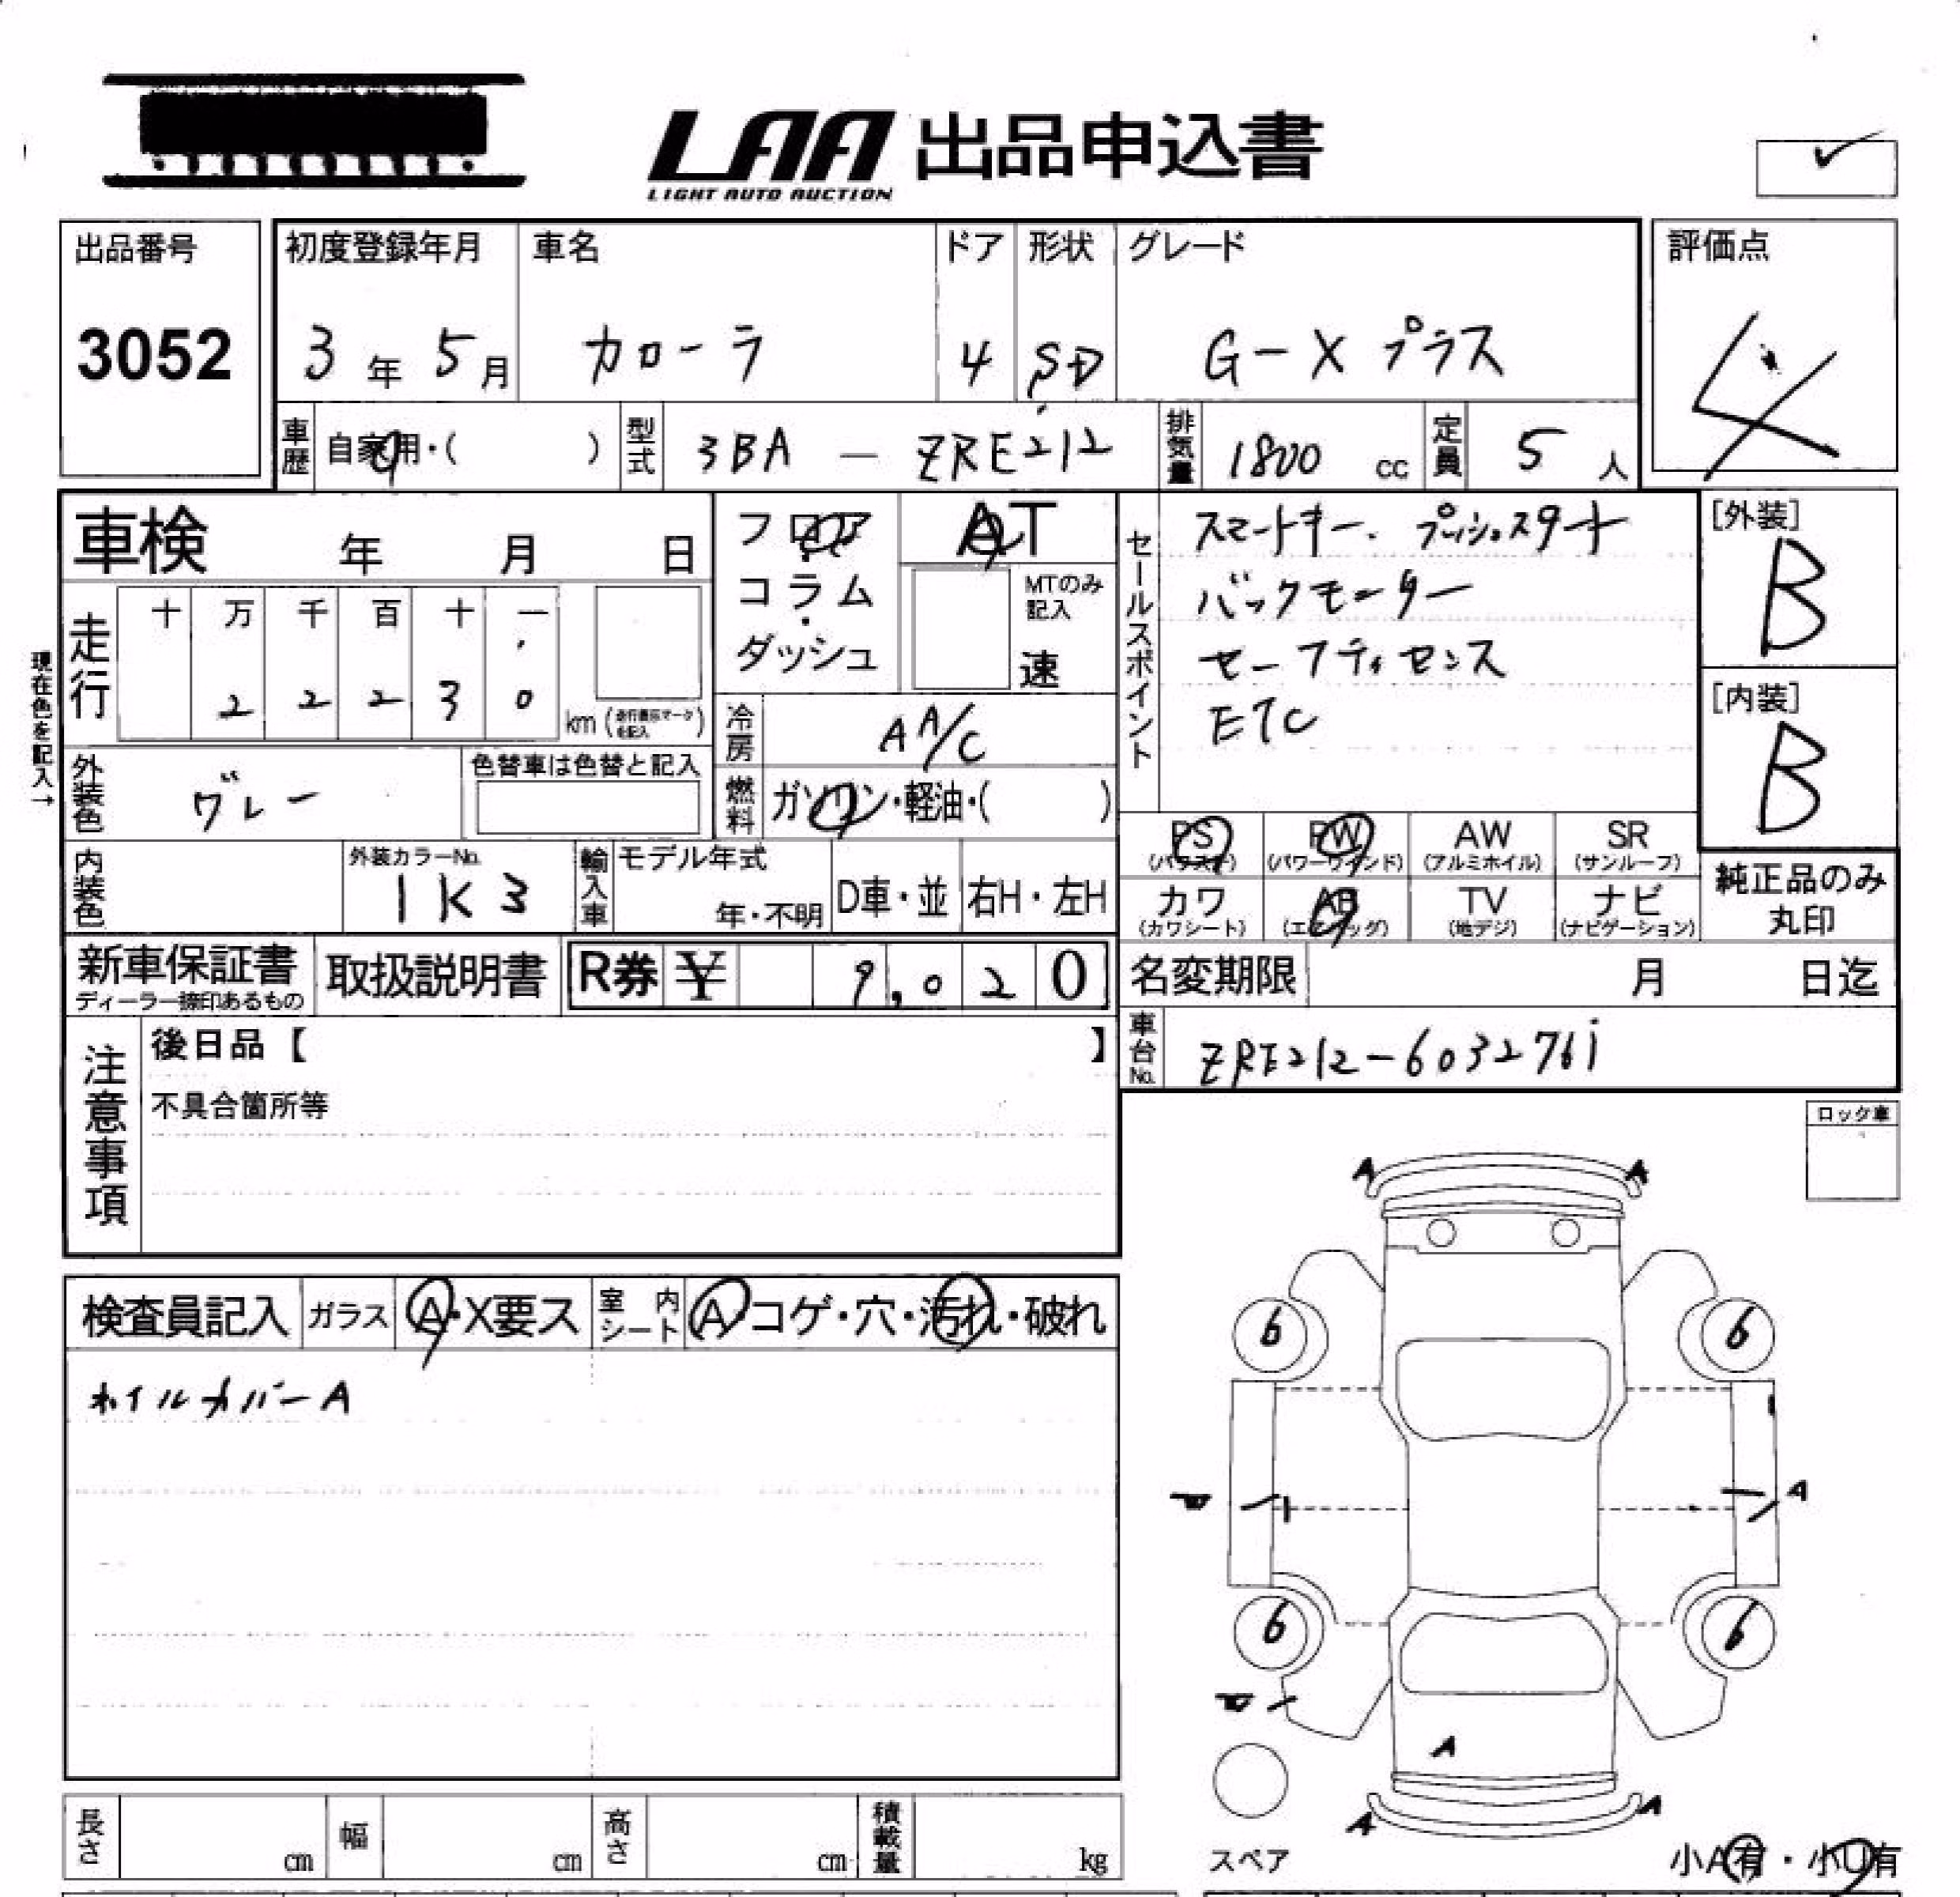 LAA 出品申込書
LIGHT AUTO AUCTION
出品番号 初度登録年月 車名 ドア 形状 グレード 評価点
3052 3年 5月 カローラ 4 SD G-X プラス 4
車歴 自家用・( ) 型式 3BA - ZRE212 排気量 1800 cc 定員 5 人
車検 年 月 日
フロア・コラム・ダッシュ
AT
MTのみ記入
速
セールスポイント
スマートキー. プッシュスタート
バックモーター
セーフティセンス
ETC
[外装]
B
[内装]
B
現在色を記入→
走行 十 万 千 百 十 一
2 2 2 3 0 km
冷房 AA/C
外装色 グレー 色替車は色替と記入
燃料 ガソリン・軽油・( )
PS PW AW SR
(パワステ) (パワーウインド) (アルミホイル) (サンルーフ)
カワ AB TV ナビ
(カワシート) (エアバッグ) (地デジ) (ナビゲーション)
純正品のみ
丸印
内装色 外装カラーNo. 1K3 輸入車 モデル年式 年・不明 D車・並 右H・左H
新車保証書 取扱説明書 R券 ¥ 9,020
ディーラー捺印あるもの
名変期限 月 日迄
車台No. ZRE212-6032761
注意事項
後日品【 】
不具合箇所等
ロック車
検査員記入 ガラス A・X要ス 室内シート A・コゲ・穴・汚れ・破れ
ホイルカバーA
A A
6 6
A
6 6
A
A A
スペア 小A有・小U有
長さ cm 幅 cm 高さ cm 積載量 kg